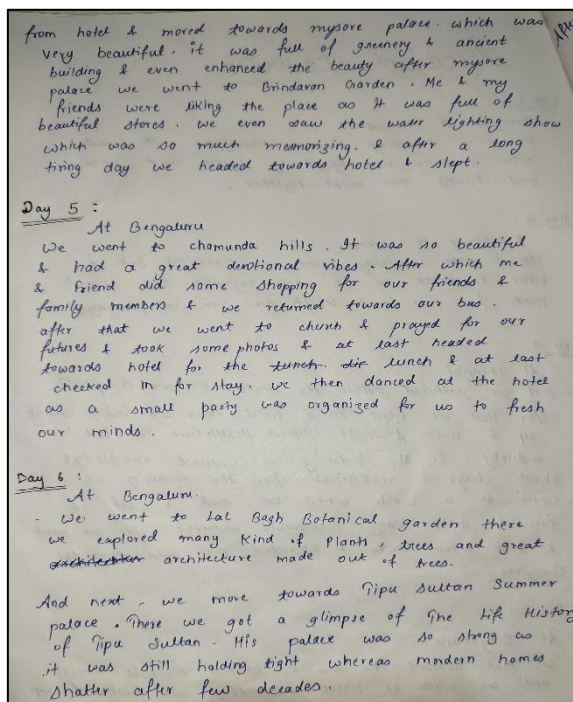 from hotel & moved towards mysore palace which was
very beautiful. it was full of greenery & ancient
building & even enhanced the beauty after mysore
palace we went to Brindavan Garden. Me & my
friends were liking the place as it was full of
beautiful stores. we even saw the water lighting show
which was so much mesmorizing. & after a long
tiring day we headed towards hotel & slept.
Day 5 :
At Bengaluru
We went to chamunda hills. It was so beautiful
& had a great devotional vibes. After which me
& friend did some shopping for our friends &
family members & we returned towards our bus.
after that we went to church & prayed for our
futures & took some photos & at last headed
towards hotel for the lunch & at last
checked in for stay. we then danced at the hotel
as a small party was organized for us to fresh
our minds.
Day 6 :
At Bengaluru.
- We went to Lal Bagh Botanical garden there
we explored many kind of plants, trees and great
architecture made out of trees.
And next, we move towards Tipu Sultan Summer
palace. There we got a glimpse of The Life History
of Tipu Sultan. His palace was so strong as
it was still holding tight whereas mordern homes
shatter after few deceades.